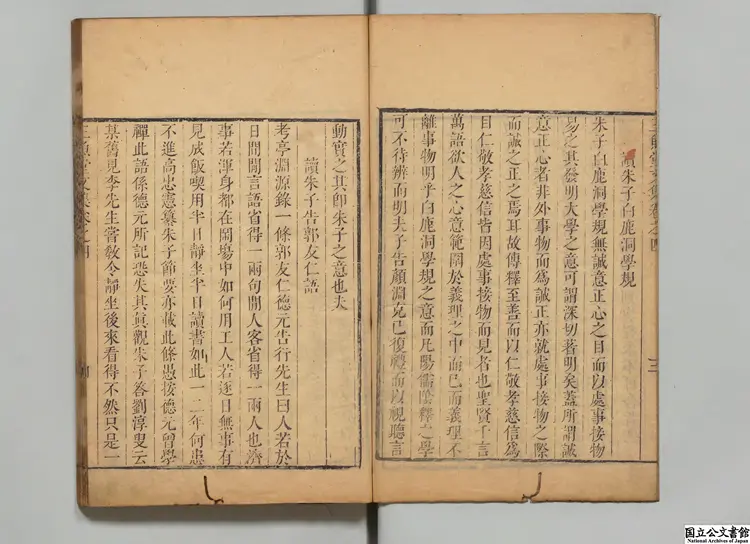 三魚堂文集卷之四
讀朱子白鹿洞學規
朱子白鹿洞學規無誠意正心之目而以處事接物
易之其發明大學之意可謂深切著明矣蓋所謂誠
意正心者非外事物而爲誠正亦就處事接物之際
而誠之正之焉耳故傳釋至善而以仁敬孝慈信爲
目仁敬孝慈信皆因處事接物而見者也聖賢千言
萬語欲人之心意範圍於義理之中而已而義理不
離事物明乎白鹿洞學規之意而凡陽儒陰釋之學
可不待辨而明夫子告顏淵克已復禮而以視聽言
動實之其即朱子之意也夫
讀朱子告郭友仁語
考亭淵源錄一條郭友仁德元告行先生曰人若於
日間閒言語省得一兩句閒人客省得一兩人也濟
事若渾身都在鬧場中如何用工人若逐日無事有
見成飯喫用半日靜坐半日讀書如此一二年何患
不進高忠憲纂朱子節要亦載此條愚按德元曾學
禪此語係德元所記恐失其眞觀朱子答劉淳叟云
某舊見李先生嘗敎令靜坐後來看得不然只是一
三魚堂文集卷之四
三
国立公文書館
National Archives of Japan